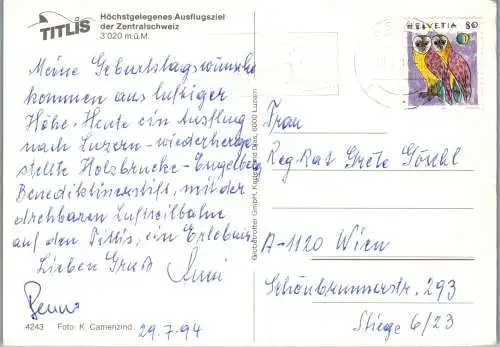 TITLIS
Höchstgelegenes Ausflugsziel
der Zentralschweiz
3'020 m.ü.M.
HELVETIA 80
Meine Geburtstagswünsche
kommen aus luftiger
Höhe. Heute ein Ausflug
nach Luzern - wiederherge-
stellte Holzbrücke - Engelberg
Benediktinerstift, mit der
drehbaren Luftseilbahn
auf den Titlis, ein Erlebnis.
Lieben Gruß
Benno
29.7.94
4243 Foto: K. Camenzind
Globetrotter GmbH, Karten und Dias, 6000 Luzern
Frau
Reg. Rat Grete Göschl
A-1120 Wien
Schönbrunnerstr. 293
Stiege 6/23